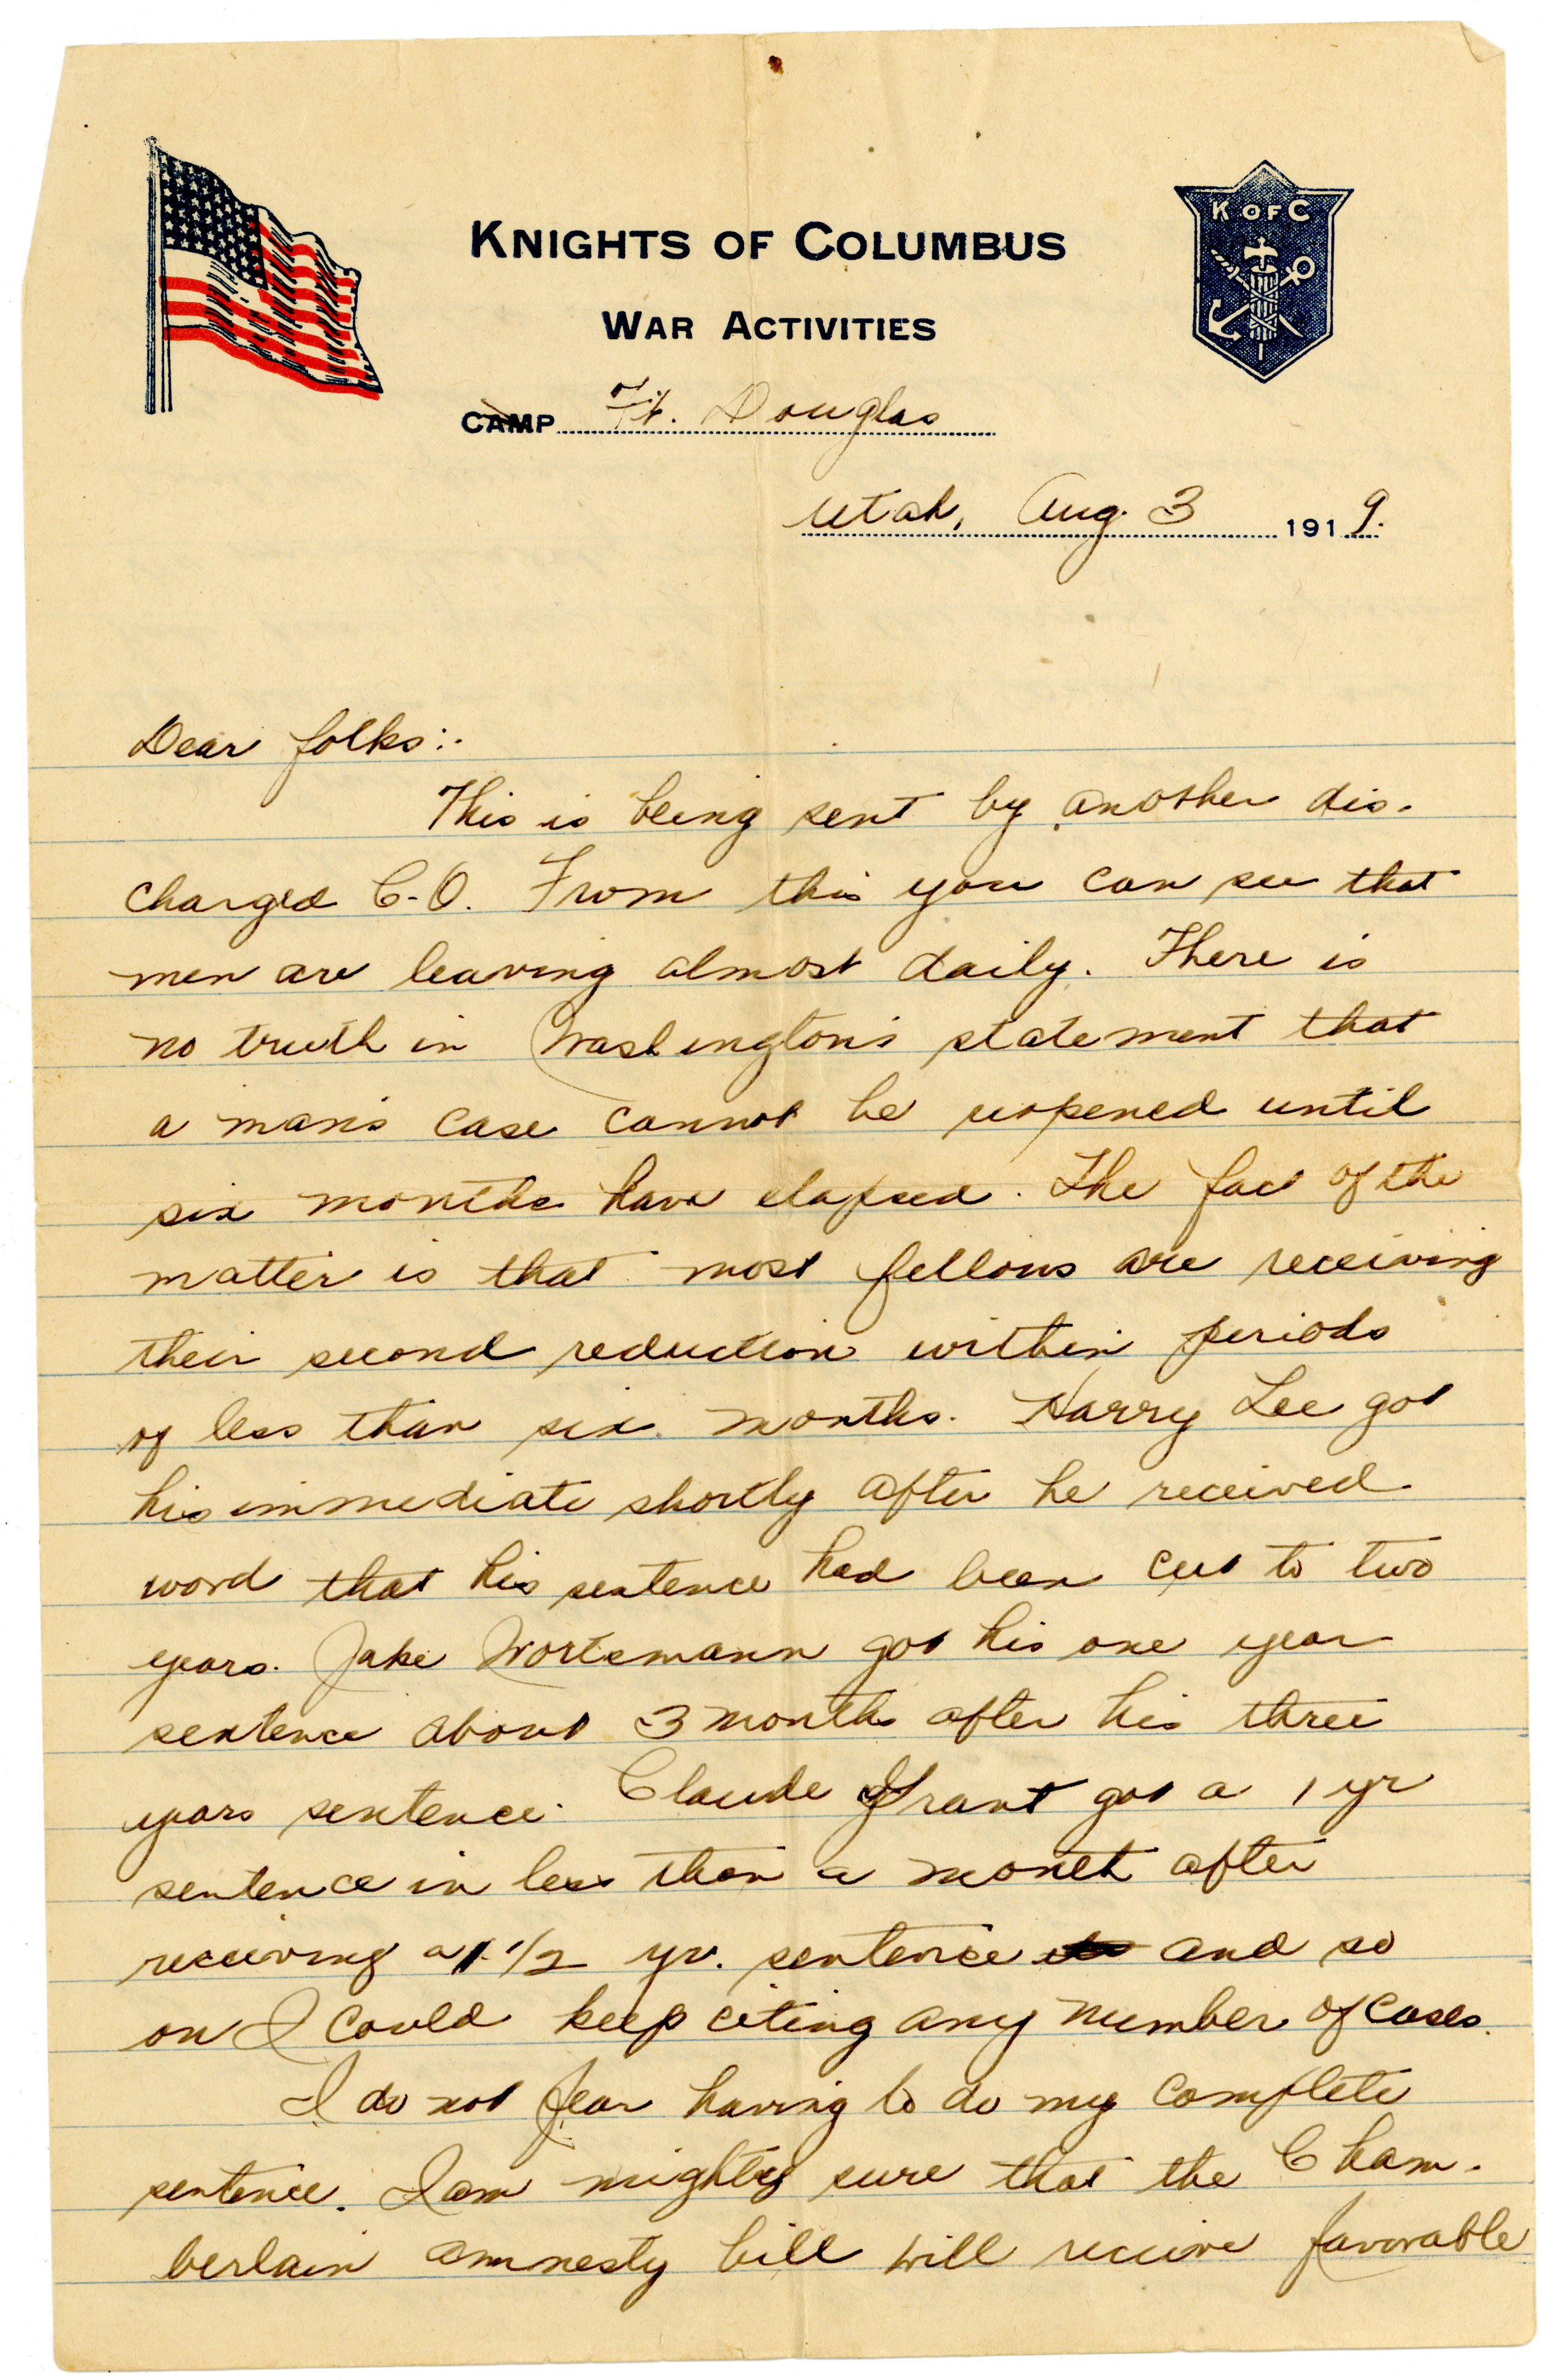 KNIGHTS OF COLUMBUS
K OF C
WAR ACTIVITIES
CAMP Ft. Douglas
Utah, Aug. 3 1919.
Dear folks:-
This is being sent by another dis-
charged C.O. From this you can see that
men are leaving almost daily. There is
no truth in Washington's statement that
a man's case cannot be reopened until
six months have elapsed. The fact of the
matter is that most fellows are receiving
their second reduction within periods
of less than six months. Harry Lee got
his immediate shortly after he received
word that his sentence had been cut to two
years. Jake Wortsmann got his one year
sentence about 3 months after his three
years sentence. Claude Grant got a 1 yr
sentence in less than a month after
receiving a 1 1/2 yr. sentence and so
on I could keep citing any number of cases.
I do not fear having to do my complete
sentence. I am mighty sure that the Cham-
berlain amnesty bill will receive favorable